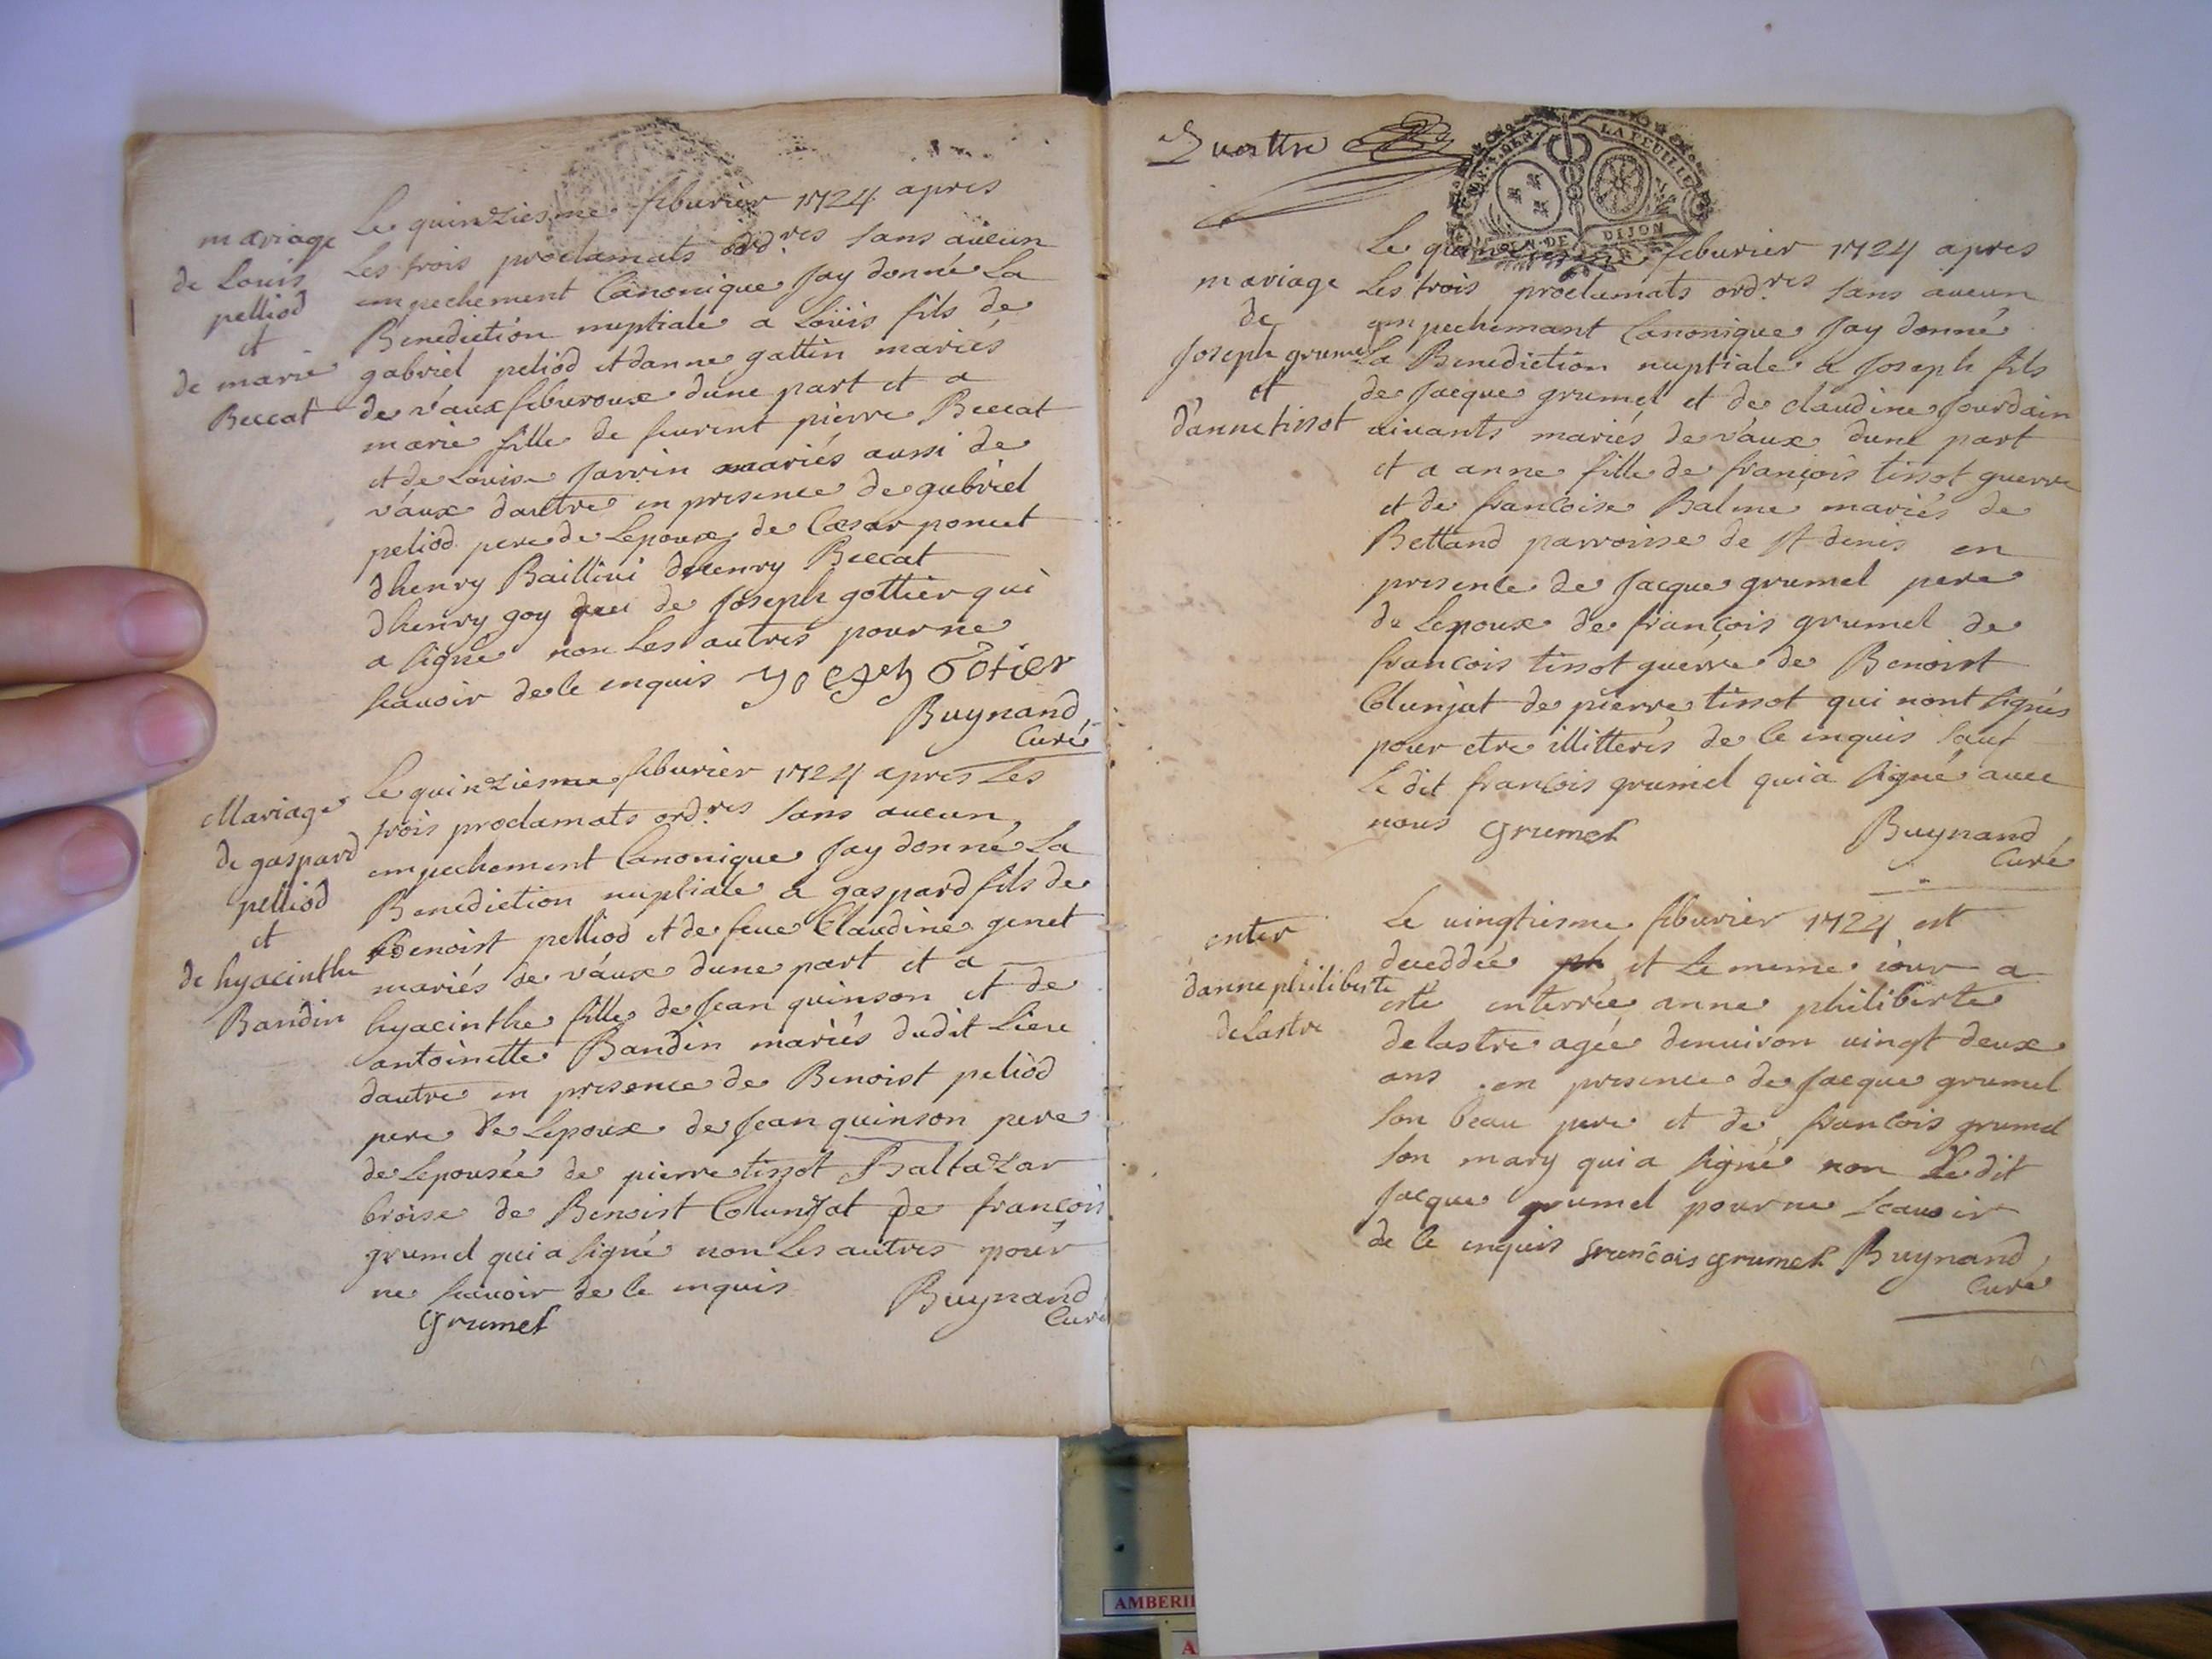 mariage
de Louis
pelliod
et
de marie
Beccat
Le quinziesme feburier 1724 apres
Les trois proclamats ord.res sans aucun
empechement Canonique Jay donné La
Benediction nuptiale a Loüis fils de
gabriel peliod et danne gattin mariés
de vaux feburoux dune part et a
marie fille de feurent pierre Beccat
et de Louise Jarrin mariés aussi de
vaux dautre en presence de gabriel
peliod pere de Lepoux de Cæsar poncet
dhenry Baillivi dhenry Beccat
dhenry goy de Joseph gottier qui
a signé non Les autres pour ne
scavoir de ce enquis
Buynand
Curé
Mariage
de gaspard
pelliod
et
de hyacinthe
Baudin
Le quinziesme feburier 1724 apres Les
trois proclamats ord.res sans aucun
empechement Canonique Jay donné La
Benediction nuptiale a gaspard fils de
Benoist pelliod et de feue Claudine genet
mariés de vaux dune part et a
hyacinthe fille de Jean quinson et de
antoinette Baudin mariés dudit Lieu
dautre en presence de Benoist peliod
pere de Lepoux de Jean quinson pere
de Lepousée de pierre tissot Baltazar
broise de Benoist Colunjat de francois
grumel qui a signé non Les autres pour
ne scavoir de ce enquis
Buynand
Curé
Grumel
Quattre
LA FEUILLE
DIJON
mariage
de
Joseph grumel
et
d'anne tissot
Le feburier 1724 apres
Les trois proclamats ord.res sans aucun
empechemant Canonique Jay donné
La Benediction nuptiale a Joseph fils
de Jacque grumel et de claudine Jourdain
vivants mariés de vaux dune part
et a anne fille de françois tissot guerre
et de francoise Balme mariés de
Bettand parroisse de St denis en
presence de Jacque grumel pere
de Lepoux de françois grumel de
francois tissot guerre de Benoist
Colunjat de pierre tissot qui nont signés
pour etre illitterés de ce enquis sauf
Le dit francois grumel qui a signé avec
nous Grumel
Buynand
Curé
enter
danne philiberte
deLastre
Le vingtiesme feburier 1724 est
deceddée et Le meme iour a
esté enterrée anne philiberte
delastre agée denuiron vingt deux
ans en presence de Jacque grumel
son beau pere et de francois grumel
son mary qui a signé non Ledit
Jacque grumel pour ne scavoir
de ce enquis francois grumel Buynand
Curé
AMBERI
A